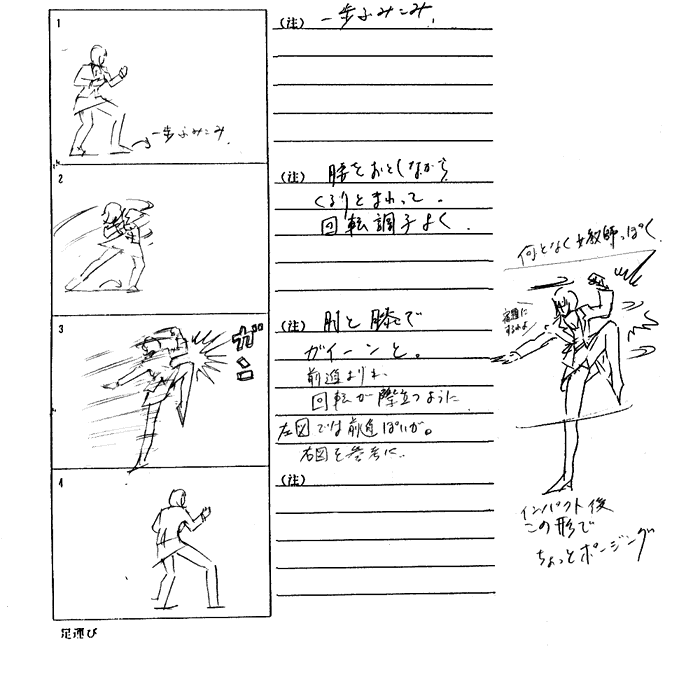 1
(注) 一歩ふみこみ.
一歩ふみこみ.
2
(注) 腰をおとしながら
くるりとまわって。
回転調子よく.
3
ガン
(注) 肘と膝で
ガイーンと。
前進よりも、
回転が際立つように
左図では前進ぽいが。
右図を参考に.
4
(注)
足運び
何となく女教師っぽく.
インパクト後
この形で
ちょっとポージング